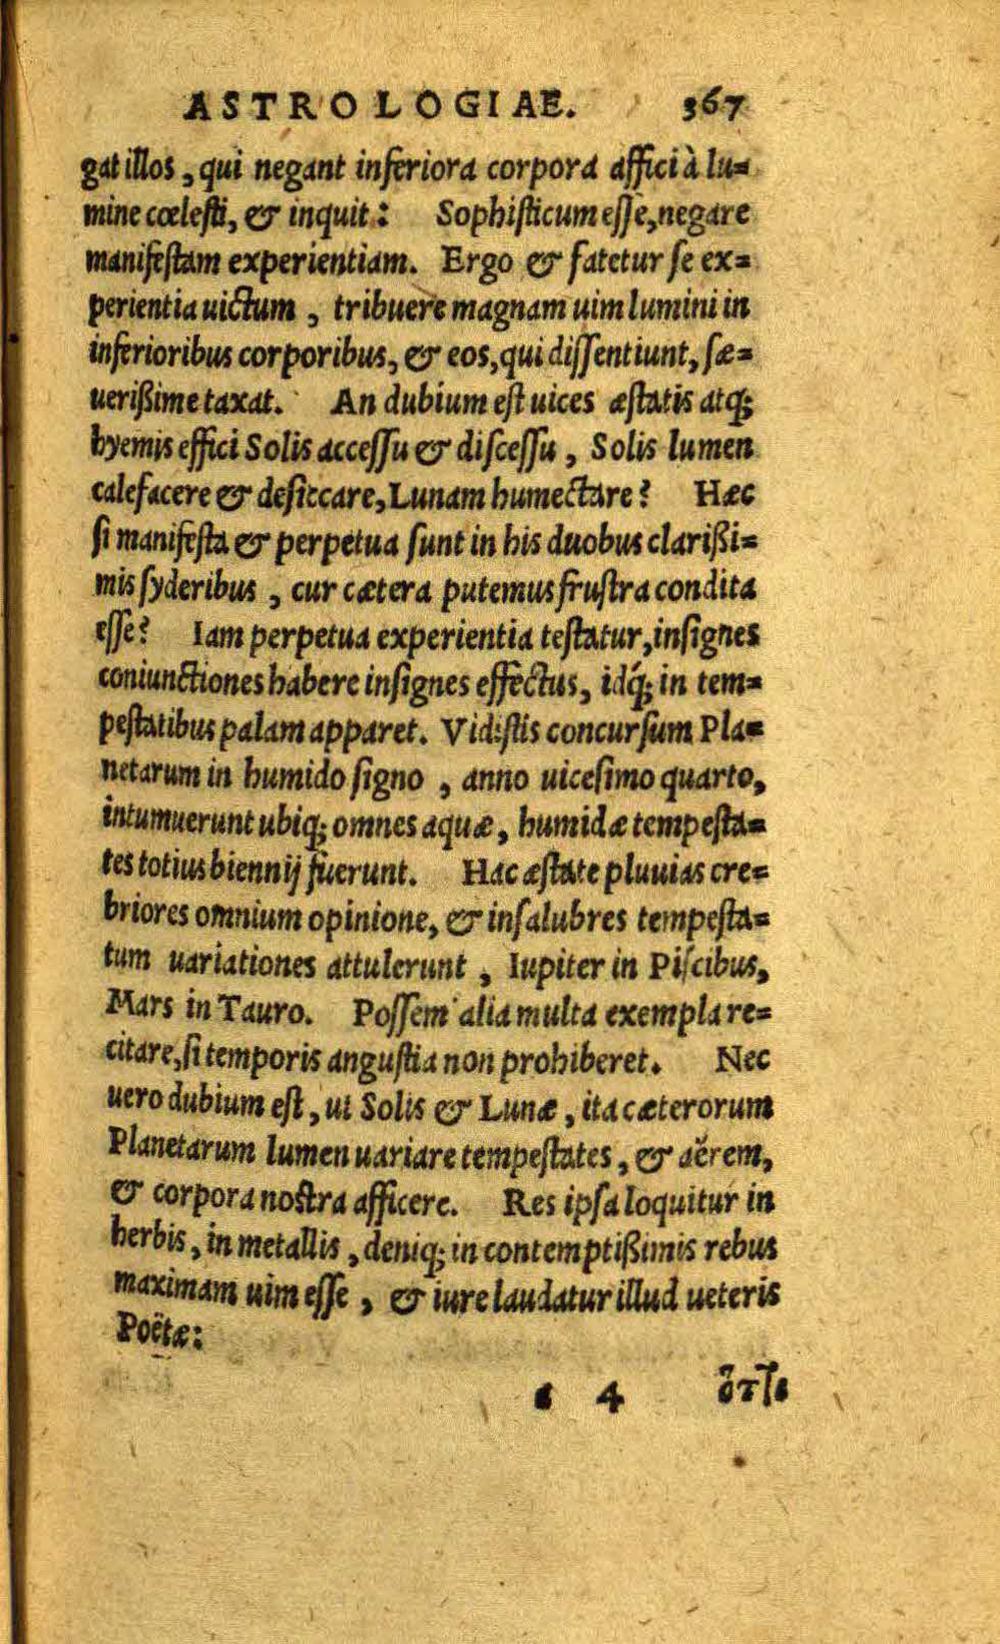 ASTROLOGIAE. 367
gat illos, qui negant inferiora corpora affici à lu=
mine cœlesti, & inquit: Sophisticum esse, negare
manifestam experientiam. Ergo & fatetur se ex=
perientia uictum, tribuere magnam uim lumini in
inferioribus corporibus, & eos, qui dissentiunt, sæ=
uerißime taxat. An dubium est uices æstatis atq;
hyemis effici Solis accessu & discessu, Solis lumen
calefacere & desiccare, Lunam humectare? Hæc
si manifesta & perpetua sunt in his duobus clarißi=
mis syderibus, cur cætera putemus frustra condita
esse? Iam perpetua experientia testatur, insignes
coniunctiones habere insignes effectus, idq́; in tem=
pestatibus palam apparet. Vidistis concursum Pla=
netarum in humido signo, anno uicesimo quarto,
intumuerunt ubiq; omnes aquæ, humidæ tempesta=
tes totius biennij fuerunt. Hac æstate pluuias cre=
briores omnium opinione, & insalubres tempesta=
tum uariationes attulerunt, Iupiter in Piscibus,
Mars in Tauro. Possem alia multa exempla re=
citare, si temporis angustia non prohiberet. Nec
uero dubium est, ut Solis & Lunæ, ita cæterorum
Planetarum lumen uariare tempestates, & aërem,
& corpora nostra afficere. Res ipsa loquitur in
herbis, in metallis, deniq; in contemptißimis rebus
maximam uim esse, & iure laudatur illud ueteris
Poëtæ:
4